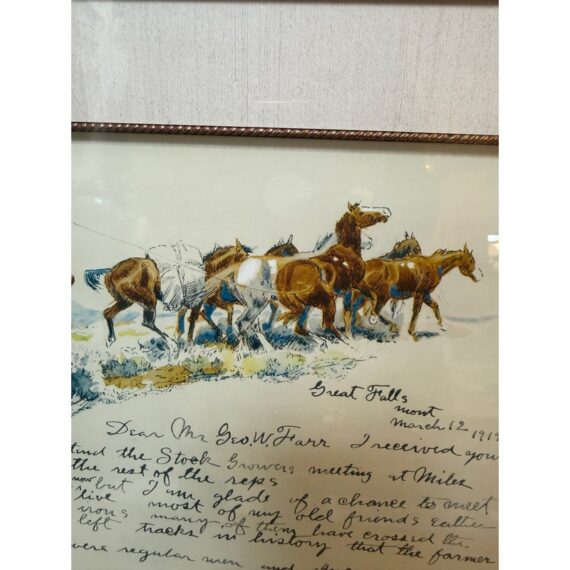 Great Falls
Mont
March 12 1919
Dear Mr Geo. W. Farr I received you
tend the Stock Growers meeting at Miles
the rest of the reps
now but I am glade of a chance to meet
live most of my old friends
many of them have crossed the
left tracks in history that the farmer
were regular men and